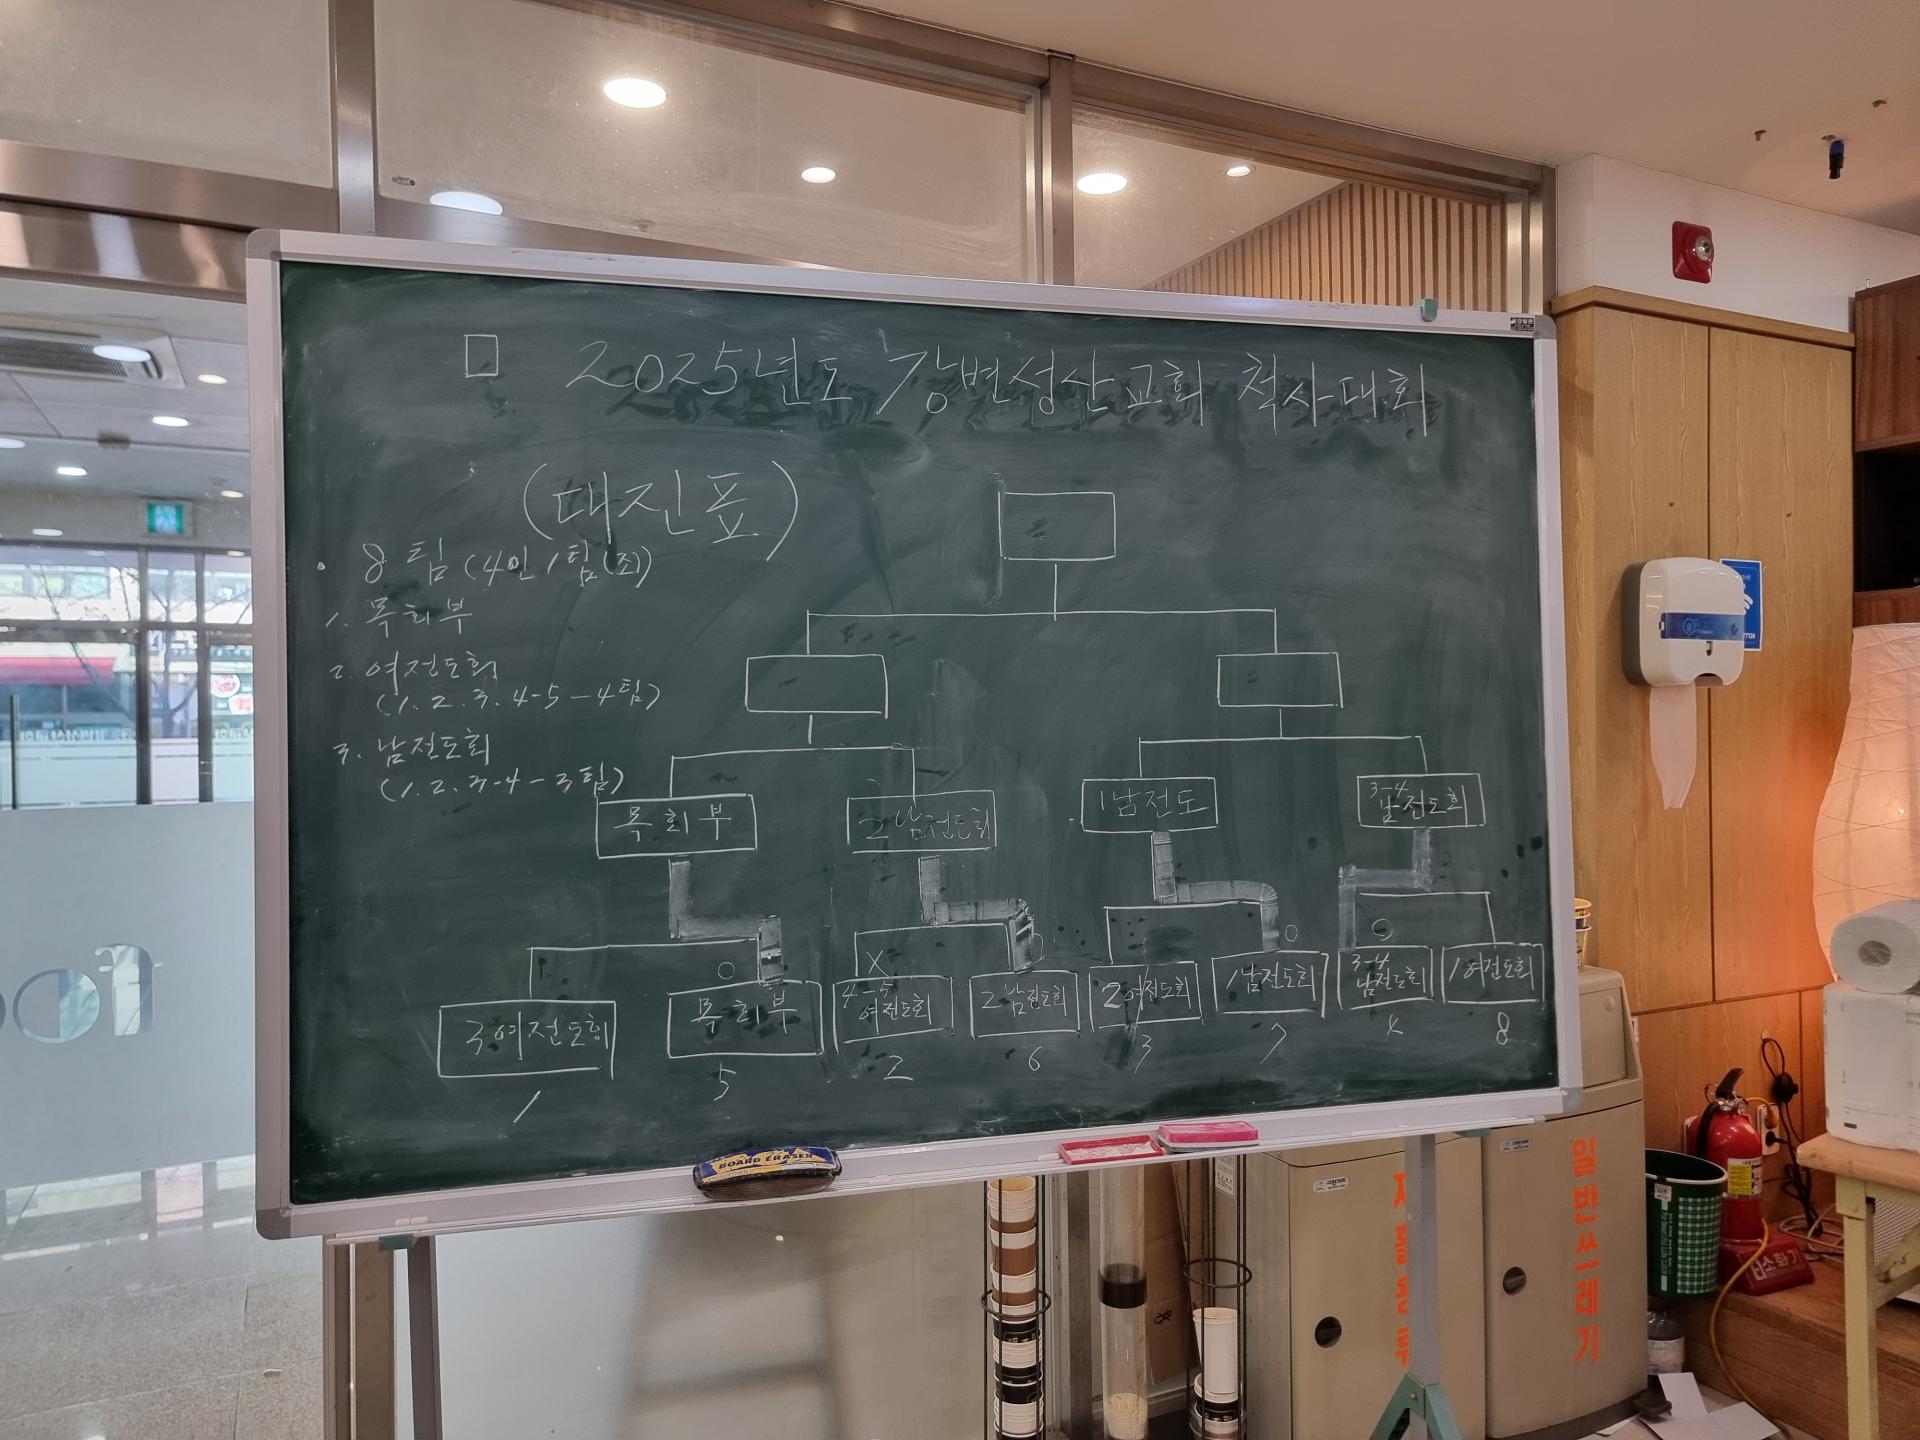 □ 2025년도 강변성산교회 척사대회
(대진표)
· 8팀 (4인 1팀(조))
1. 목회부
2. 여전도회
(1. 2. 3. 4-5 - 4팀)
3. 남전도회
(1. 2. 3-4 - 3팀)
목회부
2남전도회
1남전도
3-4
남전도회
○
X
○
○
3여전도회
목회부
4-5
여전도회
2남전도회
2여전도회
1남전도회
3-4
남전도회
1여전도회
1
5
2
6
3
7
4
8
BOARD ERASER
재활용류
일반쓰레기
소화기